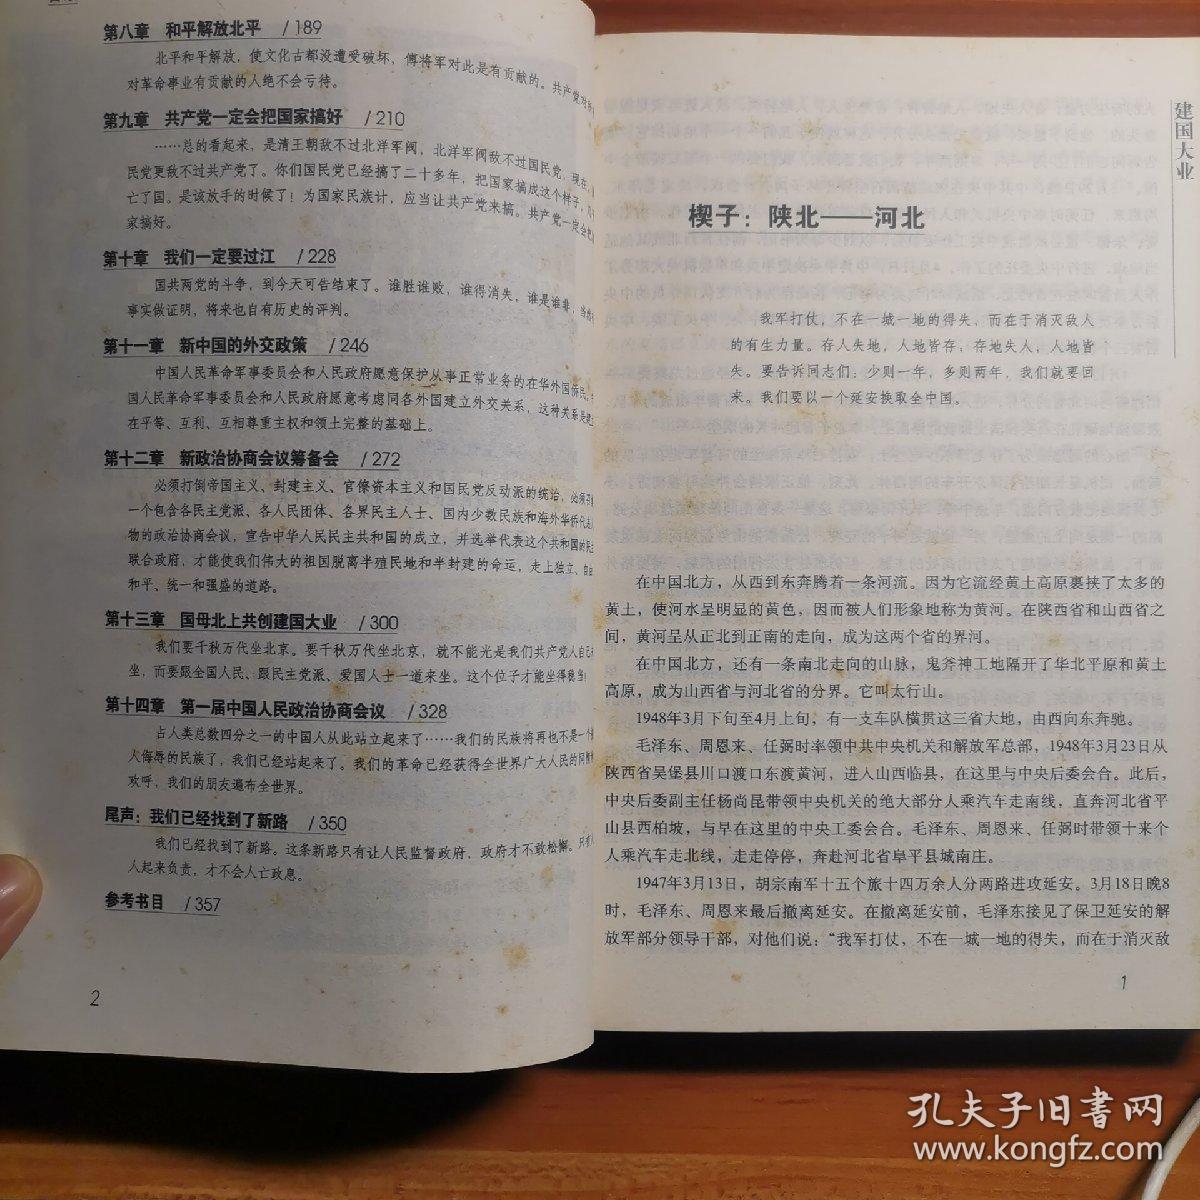 第八章 和平解放北平 /189
北平和平解放，使文化古都没遭受破坏，傅将军对此是有贡献的。共产党对
对革命事业有贡献的人绝不会亏待。
第九章 共产党一定会把国家搞好 /210
……总的看起来，是清王朝敌不过北洋军阀，北洋军阀敌不过国民党，现在，
民党更敌不过共产党了。你们国民党已经搞了二十多年，把国家搞成这个样子，
亡了国。是该放手的时候了！为国家民族计，应当让共产党来搞。共产党一定会把
家搞好。
第十章 我们一定要过江 /228
国共两党的斗争，到今天可告结束了。谁胜谁败，谁得消失，谁是谁非，当
事实做证明，将来也自有历史的评判。
第十一章 新中国的外交政策 /246
中国人民革命军事委员会和人民政府愿意保护从事正常业务的在华外国侨民。
国人民革命军事委员会和人民政府愿意考虑同各外国建立外交关系，这种关系是建
在平等、互利、互相尊重主权和领土完整的基础上。
第十二章 新政治协商会议筹备会 /272
必须打倒帝国主义、封建主义、官僚资本主义和国民党反动派的统治，必须
一个包含各民主党派、各人民团体、各界民主人士、国内少数民族和海外华侨代表
物的政治协商会议，宣告中华人民民主共和国的成立，并选举代表这个共和国的民主
联合政府，才能使我们伟大的祖国脱离半殖民地和半封建的命运，走上独立、自由
和平、统一和强盛的道路。
第十三章 国母北上共创建国大业 /300
我们要千秋万代坐北京。要千秋万代坐北京，就不能光是我们共产党人自己
坐，而要跟全国人民、跟民主党派、爱国人士一道来坐。这个位子才能坐得稳当
第十四章 第一届中国人民政治协商会议 /328
占人类总数四分之一的中国人从此站立起来了……我们的民族将再也不是一个
人侮辱的民族了，我们已经站起来了。我们的革命已经获得全世界广大人民的同情
欢呼，我们的朋友遍布全世界。
尾声：我们已经找到了新路 /350
我们已经找到了新路。这条新路只有让人民监督政府，政府才不敢松懈。只有
人起来负责，才不会人亡政息。
参考书目 /357
2
建国大业
楔子：陕北——河北
我军打仗，不在一城一地的得失，而在于消灭敌人
的有生力量。存人失地，人地皆存；存地失人，人地皆
失。要告诉同志们：少则一年，多则两年，我们就要回
来。我们要以一个延安换取全中国。
在中国北方，从西到东奔腾着一条河流。因为它流经黄土高原裹挟了太多的
黄土，使河水呈明显的黄色，因而被人们形象地称为黄河。在陕西省和山西省之
间，黄河呈从正北到正南的走向，成为这两个省的界河。
在中国北方，还有一条南北走向的山脉，鬼斧神工地隔开了华北平原和黄土
高原，成为山西省与河北省的分界。它叫太行山。
1948年3月下旬至4月上旬，有一支车队横贯这三省大地，由西向东奔驰。
毛泽东、周恩来、任弼时率领中共中央机关和解放军总部，1948年3月23日从
陕西省吴堡县川口渡口东渡黄河，进入山西临县，在这里与中央后委会合。此后，
中央后委副主任杨尚昆带领中央机关的绝大部分人乘汽车走南线，直奔河北省平
山县西柏坡，与早在这里的中央工委会合。毛泽东、周恩来、任弼时带领十来个
人乘汽车走北线，走走停停，奔赴河北省阜平县城南庄。
1947年3月13日，胡宗南军十五个旅十四万余人分两路进攻延安。3月18日晚8
时，毛泽东、周恩来最后撤离延安。在撤离延安前，毛泽东接见了保卫延安的解
放军部分领导干部，对他们说：“我军打仗，不在一城一地的得失，而在于消灭敌
1
孔夫子旧书网
www.kongfz.com